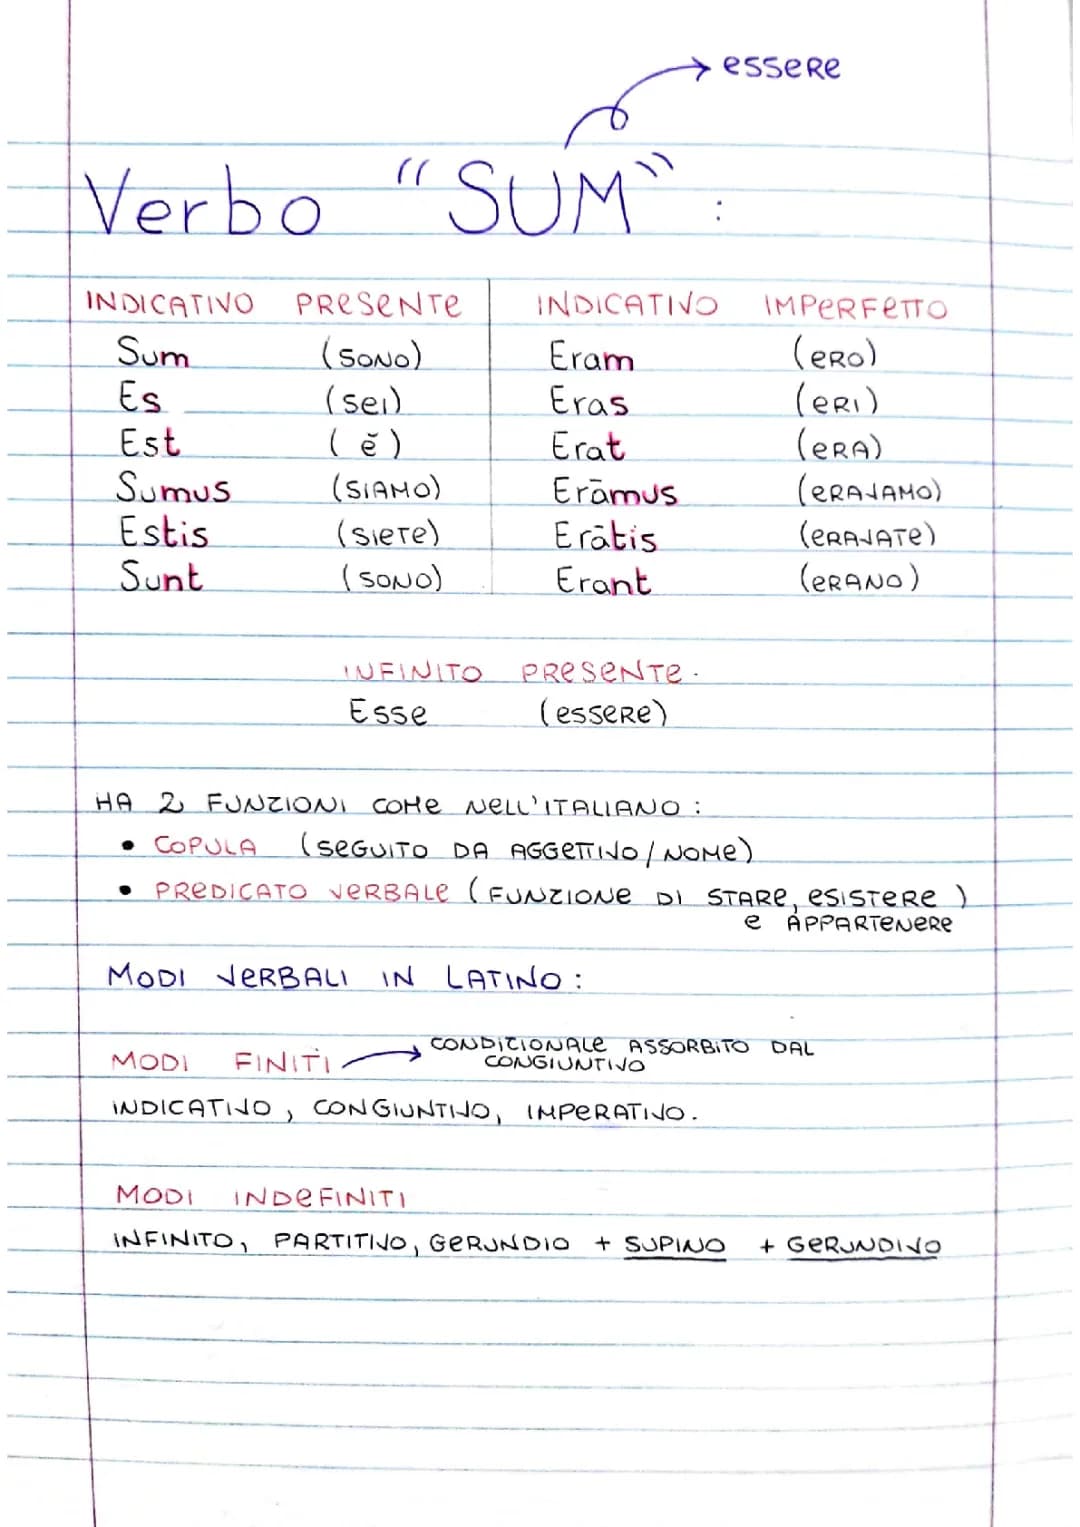 essere
Verbo "SUM" :
INDICATIVO PRESENTE INDICATIVO IMPERFETTO
Sum (SONO) Eram (ERO)
Es (SEI) Eras (ERI)
Est (ĕ) Erat (ERA)
Sumus (SIAMO) Erāmus (ERAVAMO)
Estis (SIETE) Erātis (ERAVATE)
Sunt (SONO) Erant (ERANO)
INFINITO PRESENTE.
Esse (ESSERE)
HA 2 FUNZIONI COME NELL'ITALIANO :
• COPULA (SEGUITO DA AGGETTIVO/NOME)
• PREDICATO VERBALE (FUNZIONE DI STARE, ESISTERE )
e APPARTENERE
MODI VERBALI IN LATINO :
CONDIZIONALE ASSORBITO DAL
MODI FINITI CONGIUNTIVO
INDICATIVO, CONGIUNTIVO, IMPERATIVO.
MODI INDEFINITI
INFINITO, PARTITIVO, GERUNDIO + SUPINO + GERUNDIVO